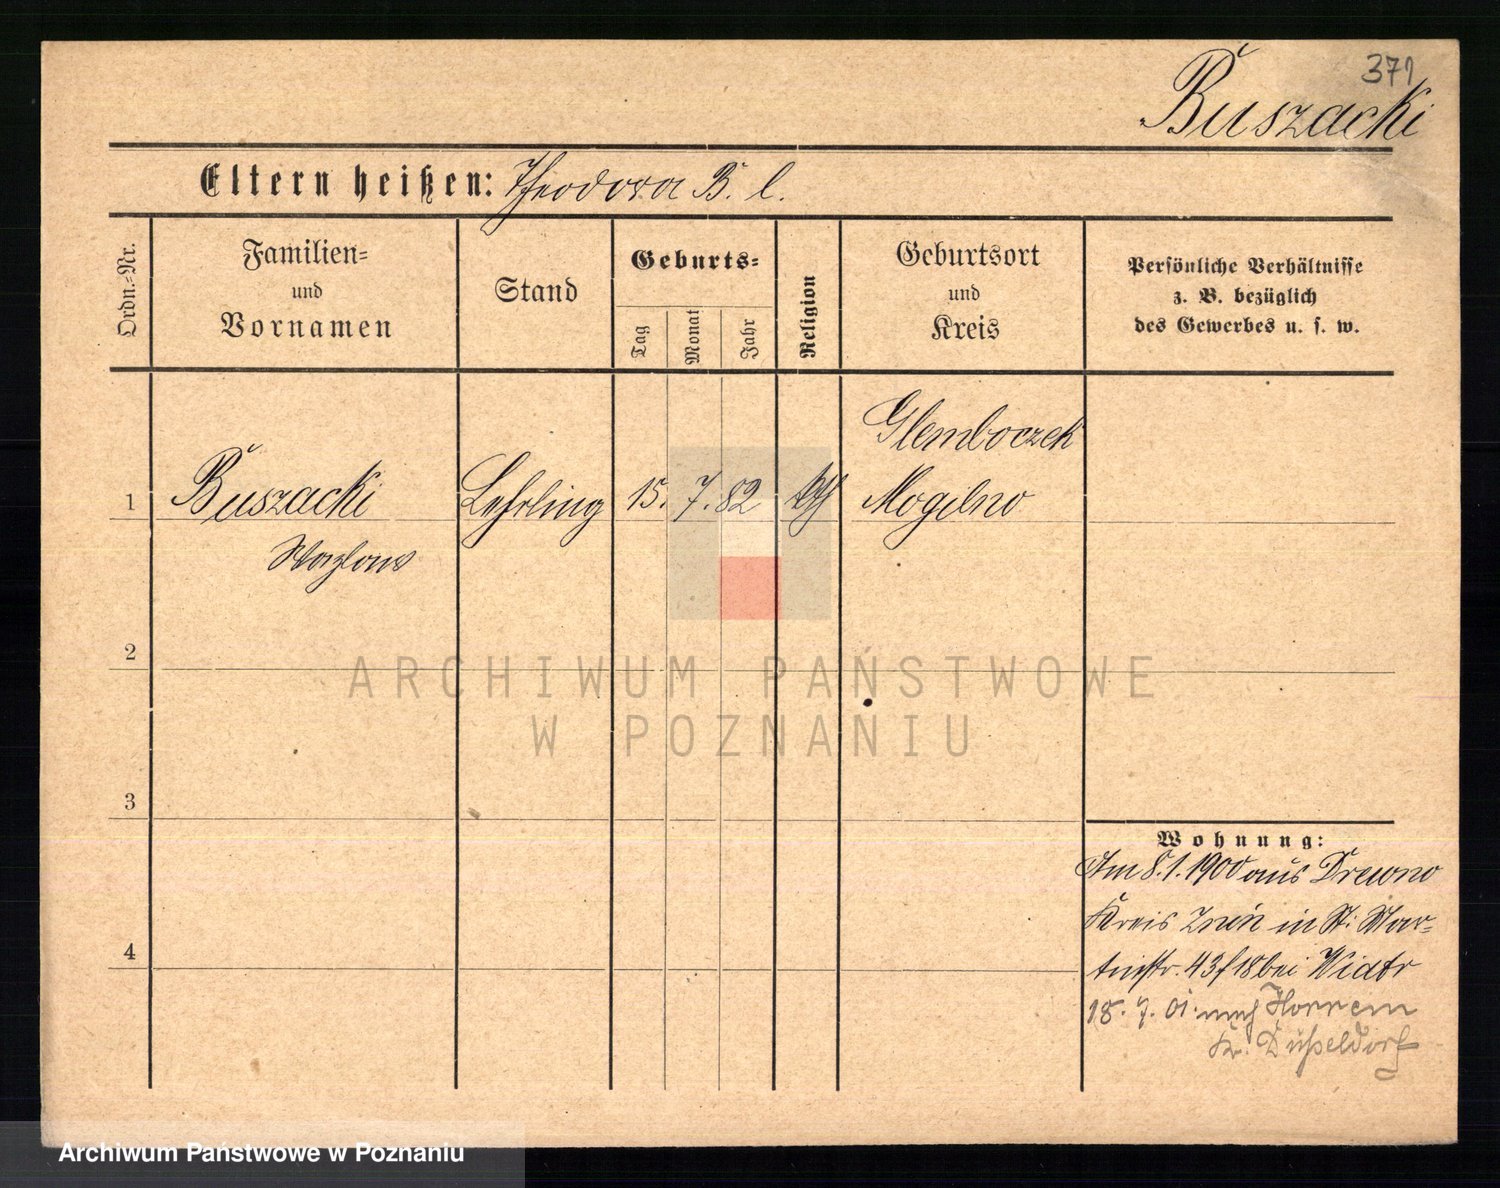 371
Buszacki
Eltern heißen: Theodora B. l.
Ordn.-Nr.
Familien-
und
Vornamen
Stand
Geburts-
Tag
Monat
Jahr
Religion
Geburtsort
und
Kreis
Persönliche Verhältnisse
z. B. bezüglich
des Gewerbes u. s. w.
Glemboczek
1 Buszacki Lehrling 15. 7. 82 kth Mogilno
Wazlaw
2
ARCHIWUM PAŃSTWOWE
W POZNANIU
3
Wohnung:
Am 8.1.1900 aus Drewno
Kreis Znin in St: Mar-
tinstr. 43/18 bei Widtr
4
18. 7. 01. nach Horrem
Kr. Düßeldorf
Archiwum Państwowe w Poznaniu